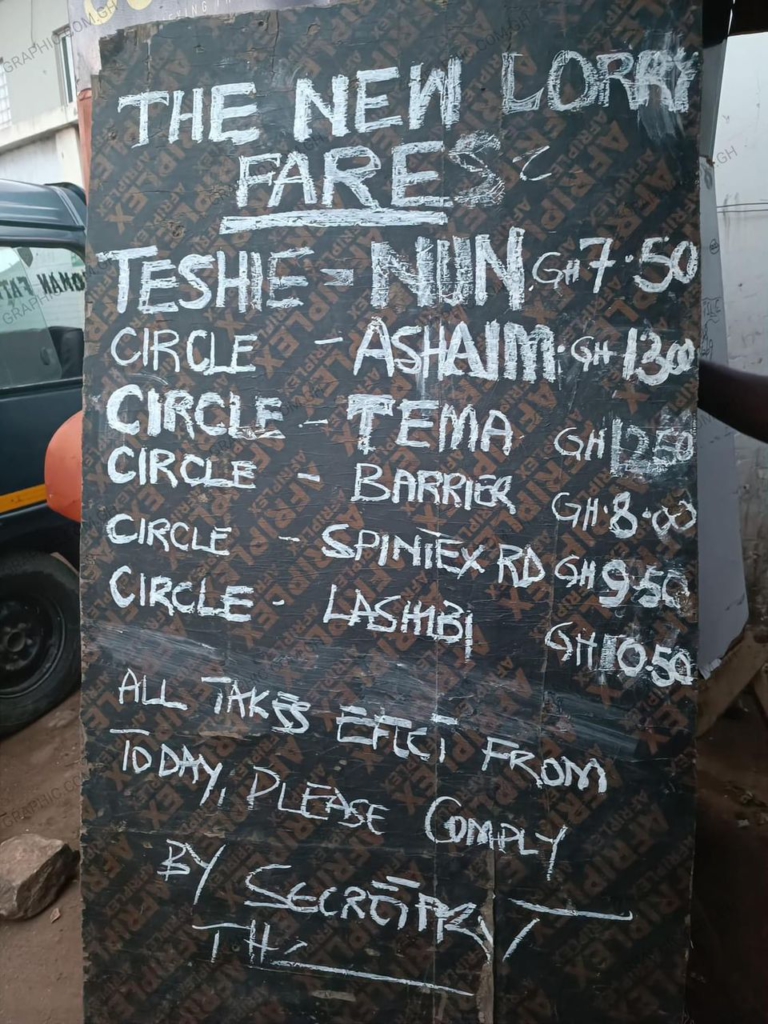 THE NEW LORRY
FARES:
TESHIE = NUN. GH 7.50
CIRCLE - ASHAIM. GH 13.00
CIRCLE - TEMA GH 12.50
CIRCLE - BARRIER GH.8.00
CIRCLE - SPINTEX RD GH 9.50
CIRCLE - LASHIBI GH 10.50
ALL TAKES EFFECT FROM
TODAY, PLEASE COMPLY
BY SECRETARY
GRAPHIC.COM.GH
AFRIPLEX